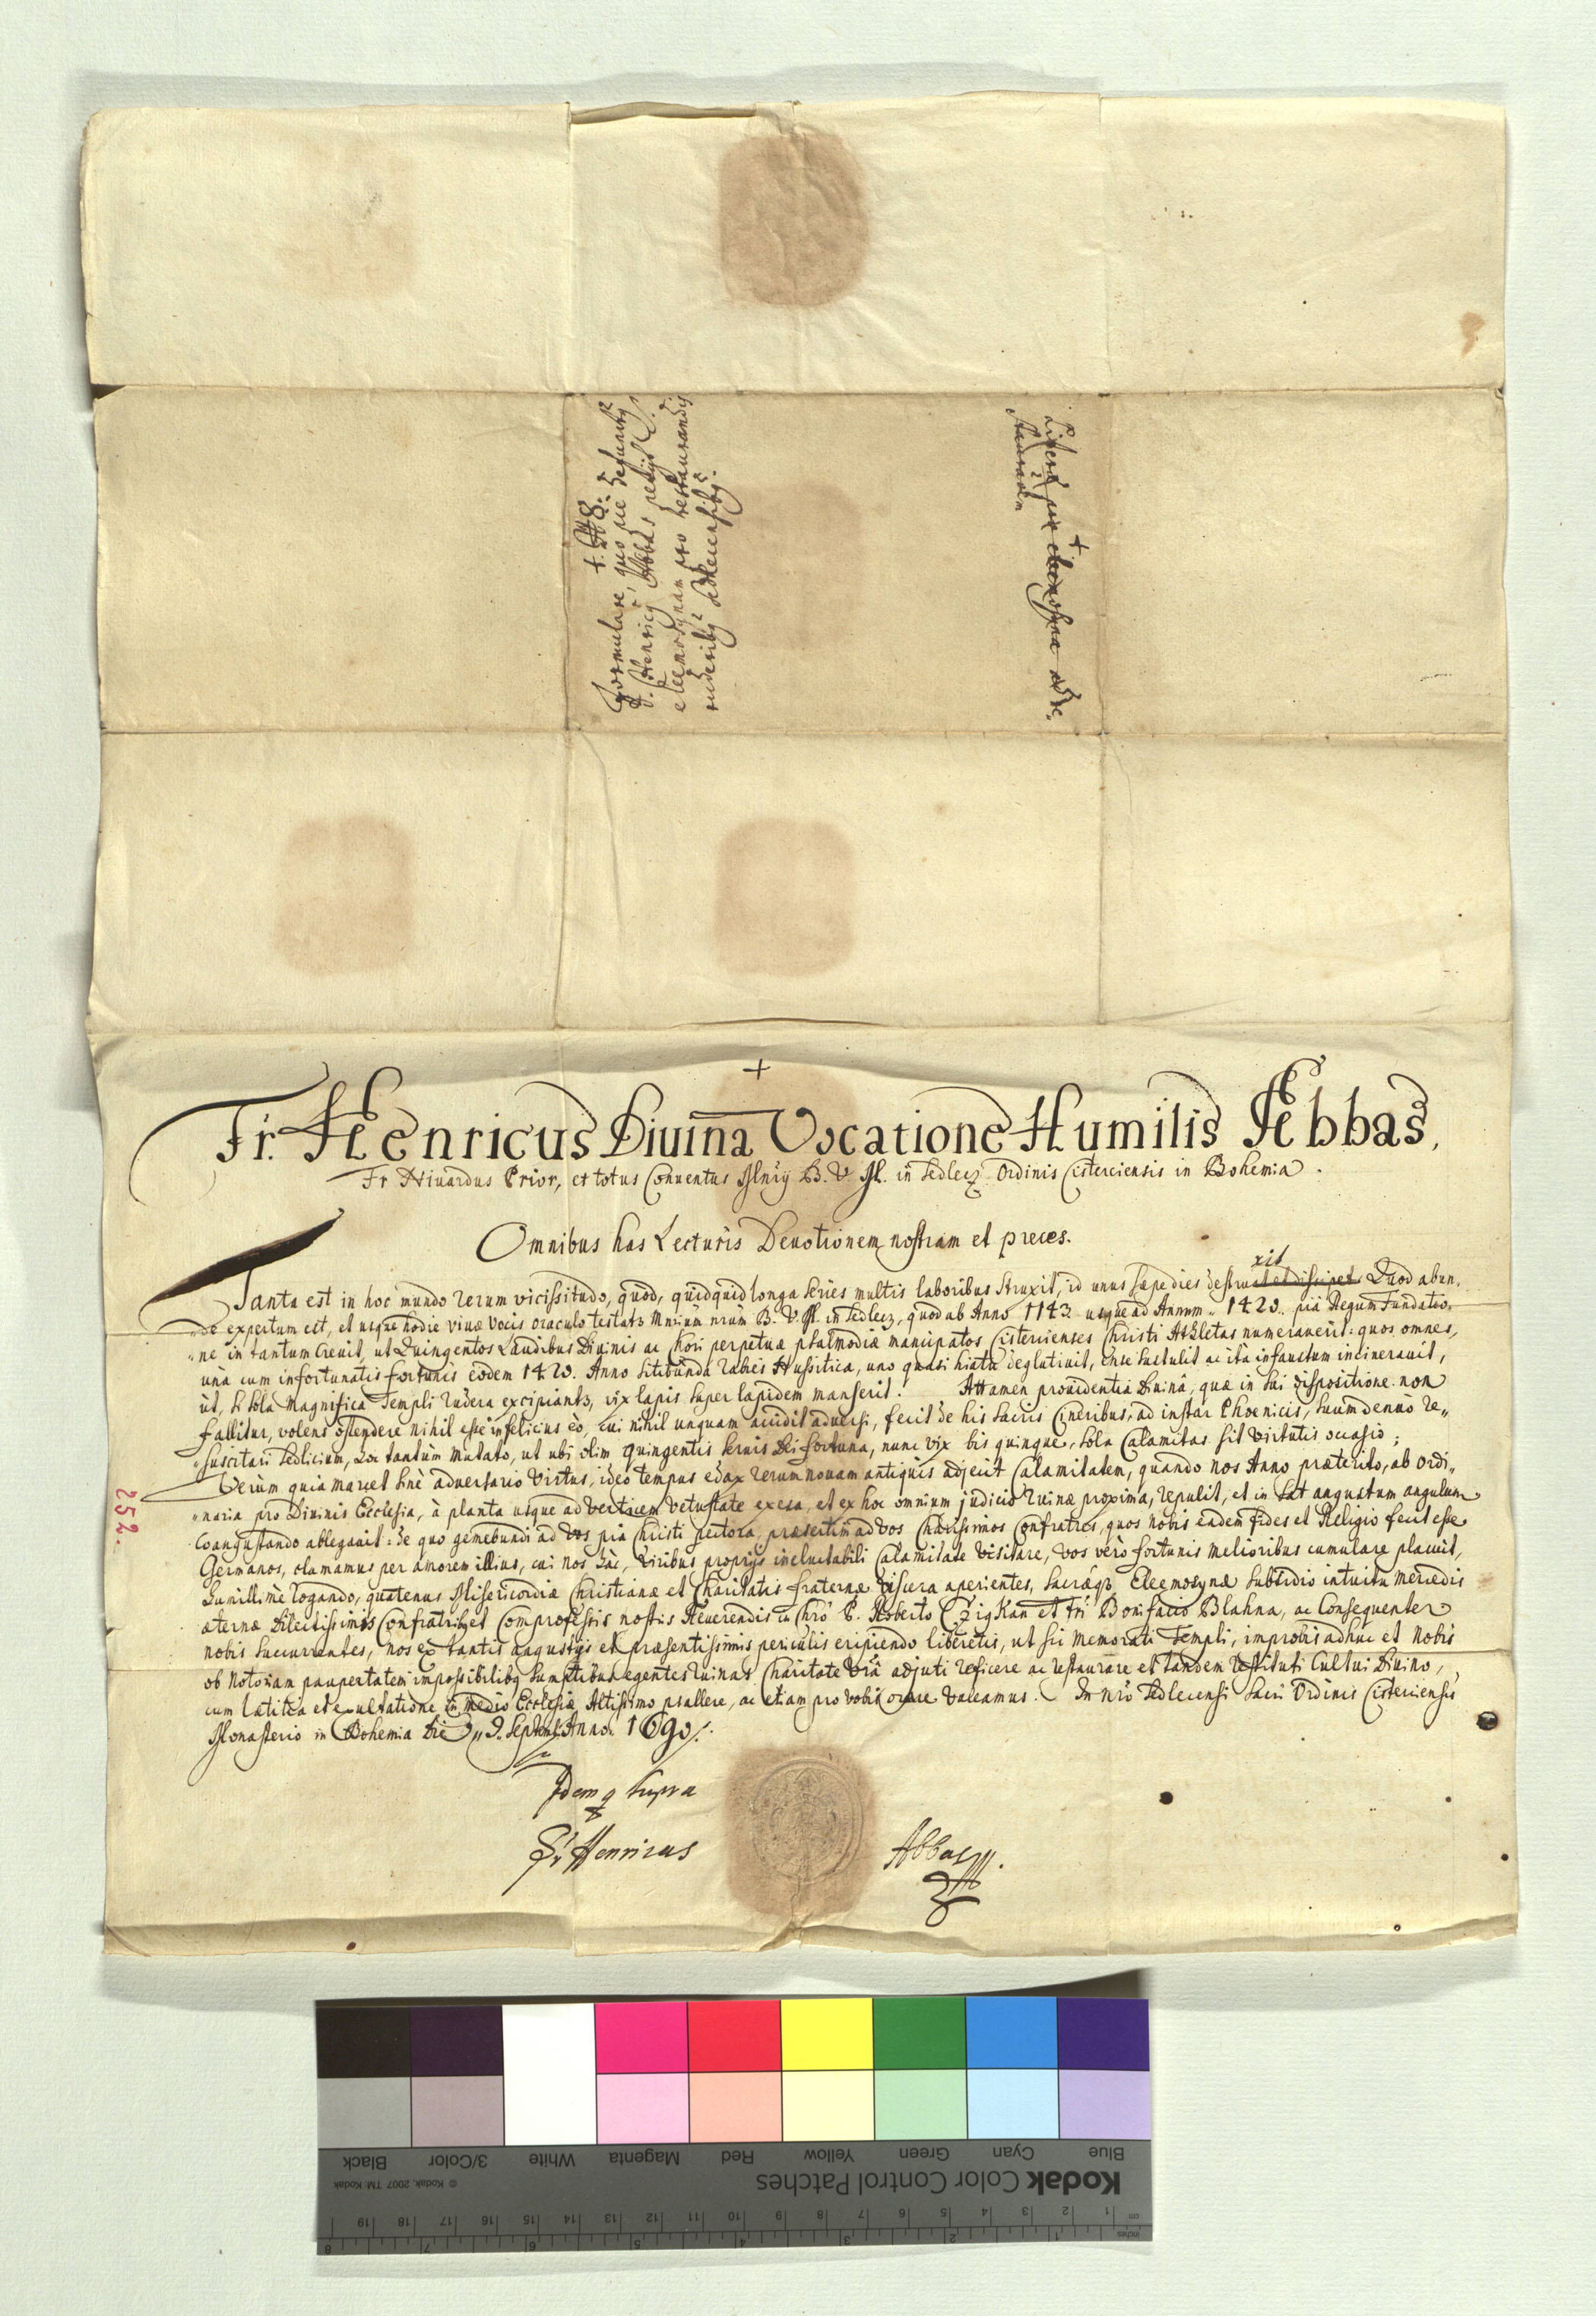 Formulare, quo pie defunctq
D. Henricq Abbas petijt
eleemosynam pro restaurandis
ruderibq Sedlecensibq.
Litera pro eleemosyna ad re,
staurãn
+
Fr. Henricus Diuina Vocatione Humilis Abbas,
Fr. Niuardus Prior, et totus Conuentus Mnrij B. V. M. in Sedlecz Ordinis Cisterciensis in Bohemia.
Omnibus has Lecturis Deuotionem nostram et preces.
xit
Tanta est in hoc mundo rerum vicissitudo, quod, quidquid longa series multis laboribus struxit, id unus saepe dies destruat et dissipet. Quod abun,
de expertum est, et usque hodie vivae vocis oraculo testatr Mnrium nrum B. V. M. in Sedlecz, quod ab Anno 1143 usque ad Annum 1420. piâ Regum Fundatio,
ne in tantum Creuit, ut Quingentos Laudibus Diuinis ac Chori perpetuae psalmodiae mancipatos Cistercienses Christi Athletas numerauerit: quos omnes,
unà cum infortunatis fortunis eodem 1420. Anno sitibunda rabies Hussitica, uno quasi hiatu deglutiuit, ense sustulit ac ità infaustum incinerauit,
ut, si sola Magnifica Templi rudera excipiantr, vix lapis super lapidem manserit. Attamen prouidentia Diuinâ, quae in sui dispositione non
fallitur, volens ostendere nihil esse infelicius eò, cui nihil unquam accidit aduersi, fecit de his sacris Cineribus, ad instar Phoenicis, suum denuò re,,
suscitari Sedlicium, Loc tantùm mutato, ut ubi olim quingentis seruis Dei fortuna, nunc vix bis quinque, sola Calamitas sit virtutis occasio;
Verùm quia marcet sinè aduersario Virtus, ideo tempus edax rerum nouam antiquis adjecit Calamitatem, quando nos Anno praeterito, ab ordi,,
naria pro Diuinis Ecclesia, à planta usque ad verticem vetustate exesa, et ex hoc omnium judicio ruinae proxima, repulit, et in sat angustum angulum
coangustando ablegauit: de quo gemebundi ad vos pia Christi pectora, praesertim ad vos Charissimos Confratres, quos nobis eadem fides et Religio fecit esse
Germanos, clamamus per amorem illius, cui nos hâc, viribus proprijs ineluctabili Calamitate visitare, vos verò fortunis melioribus cumulare placuit,
humillimè rogando, quatenus Misericordiae Christianae et Charitatis fraternae viscera aperientes, sacraeqz Eleemosynae subsidio intuitu mercedis
aeternae Dilectissimis Confratribq et Comprofessis nostris Reuerendis in Chrô P. Roberto Czigkan et Fri Bonifacio Blahna, ac Consequenter
nobis succurrentes, nos ex tantis angustijs et praesentissimis periculis eripiendo liberetis, ut sic memorati Templi, improbis adhuc et nobis
ob notoriam paupertatem impossibilibq sumptibus egentes ruinas Charitate vrâ adjuti reficere ac restaurare et tandem restituti Cultui Diuino,
cum laetitia et exultatione in medio Ecclesiae Altissimo psallere, ac etiam pro vobis orare valeamus. In nrô Sedlecensi Sacri Ordinis Cisterciensis
Monasterio in Bohemia Die 9. Septemb. Anno. 1690.
Idem q supra
Fr Henricus Abbas
252.
Blue Cyan Green Yellow Red Magenta White 3/Color Black
Kodak Color Control Patches © Kodak, 2007 TM: Kodak
cm 1 2 3 4 5 6 7 8 9 10 11 12 13 14 15 16 17 18 19
inches 1 2 3 4 5 6 7 8